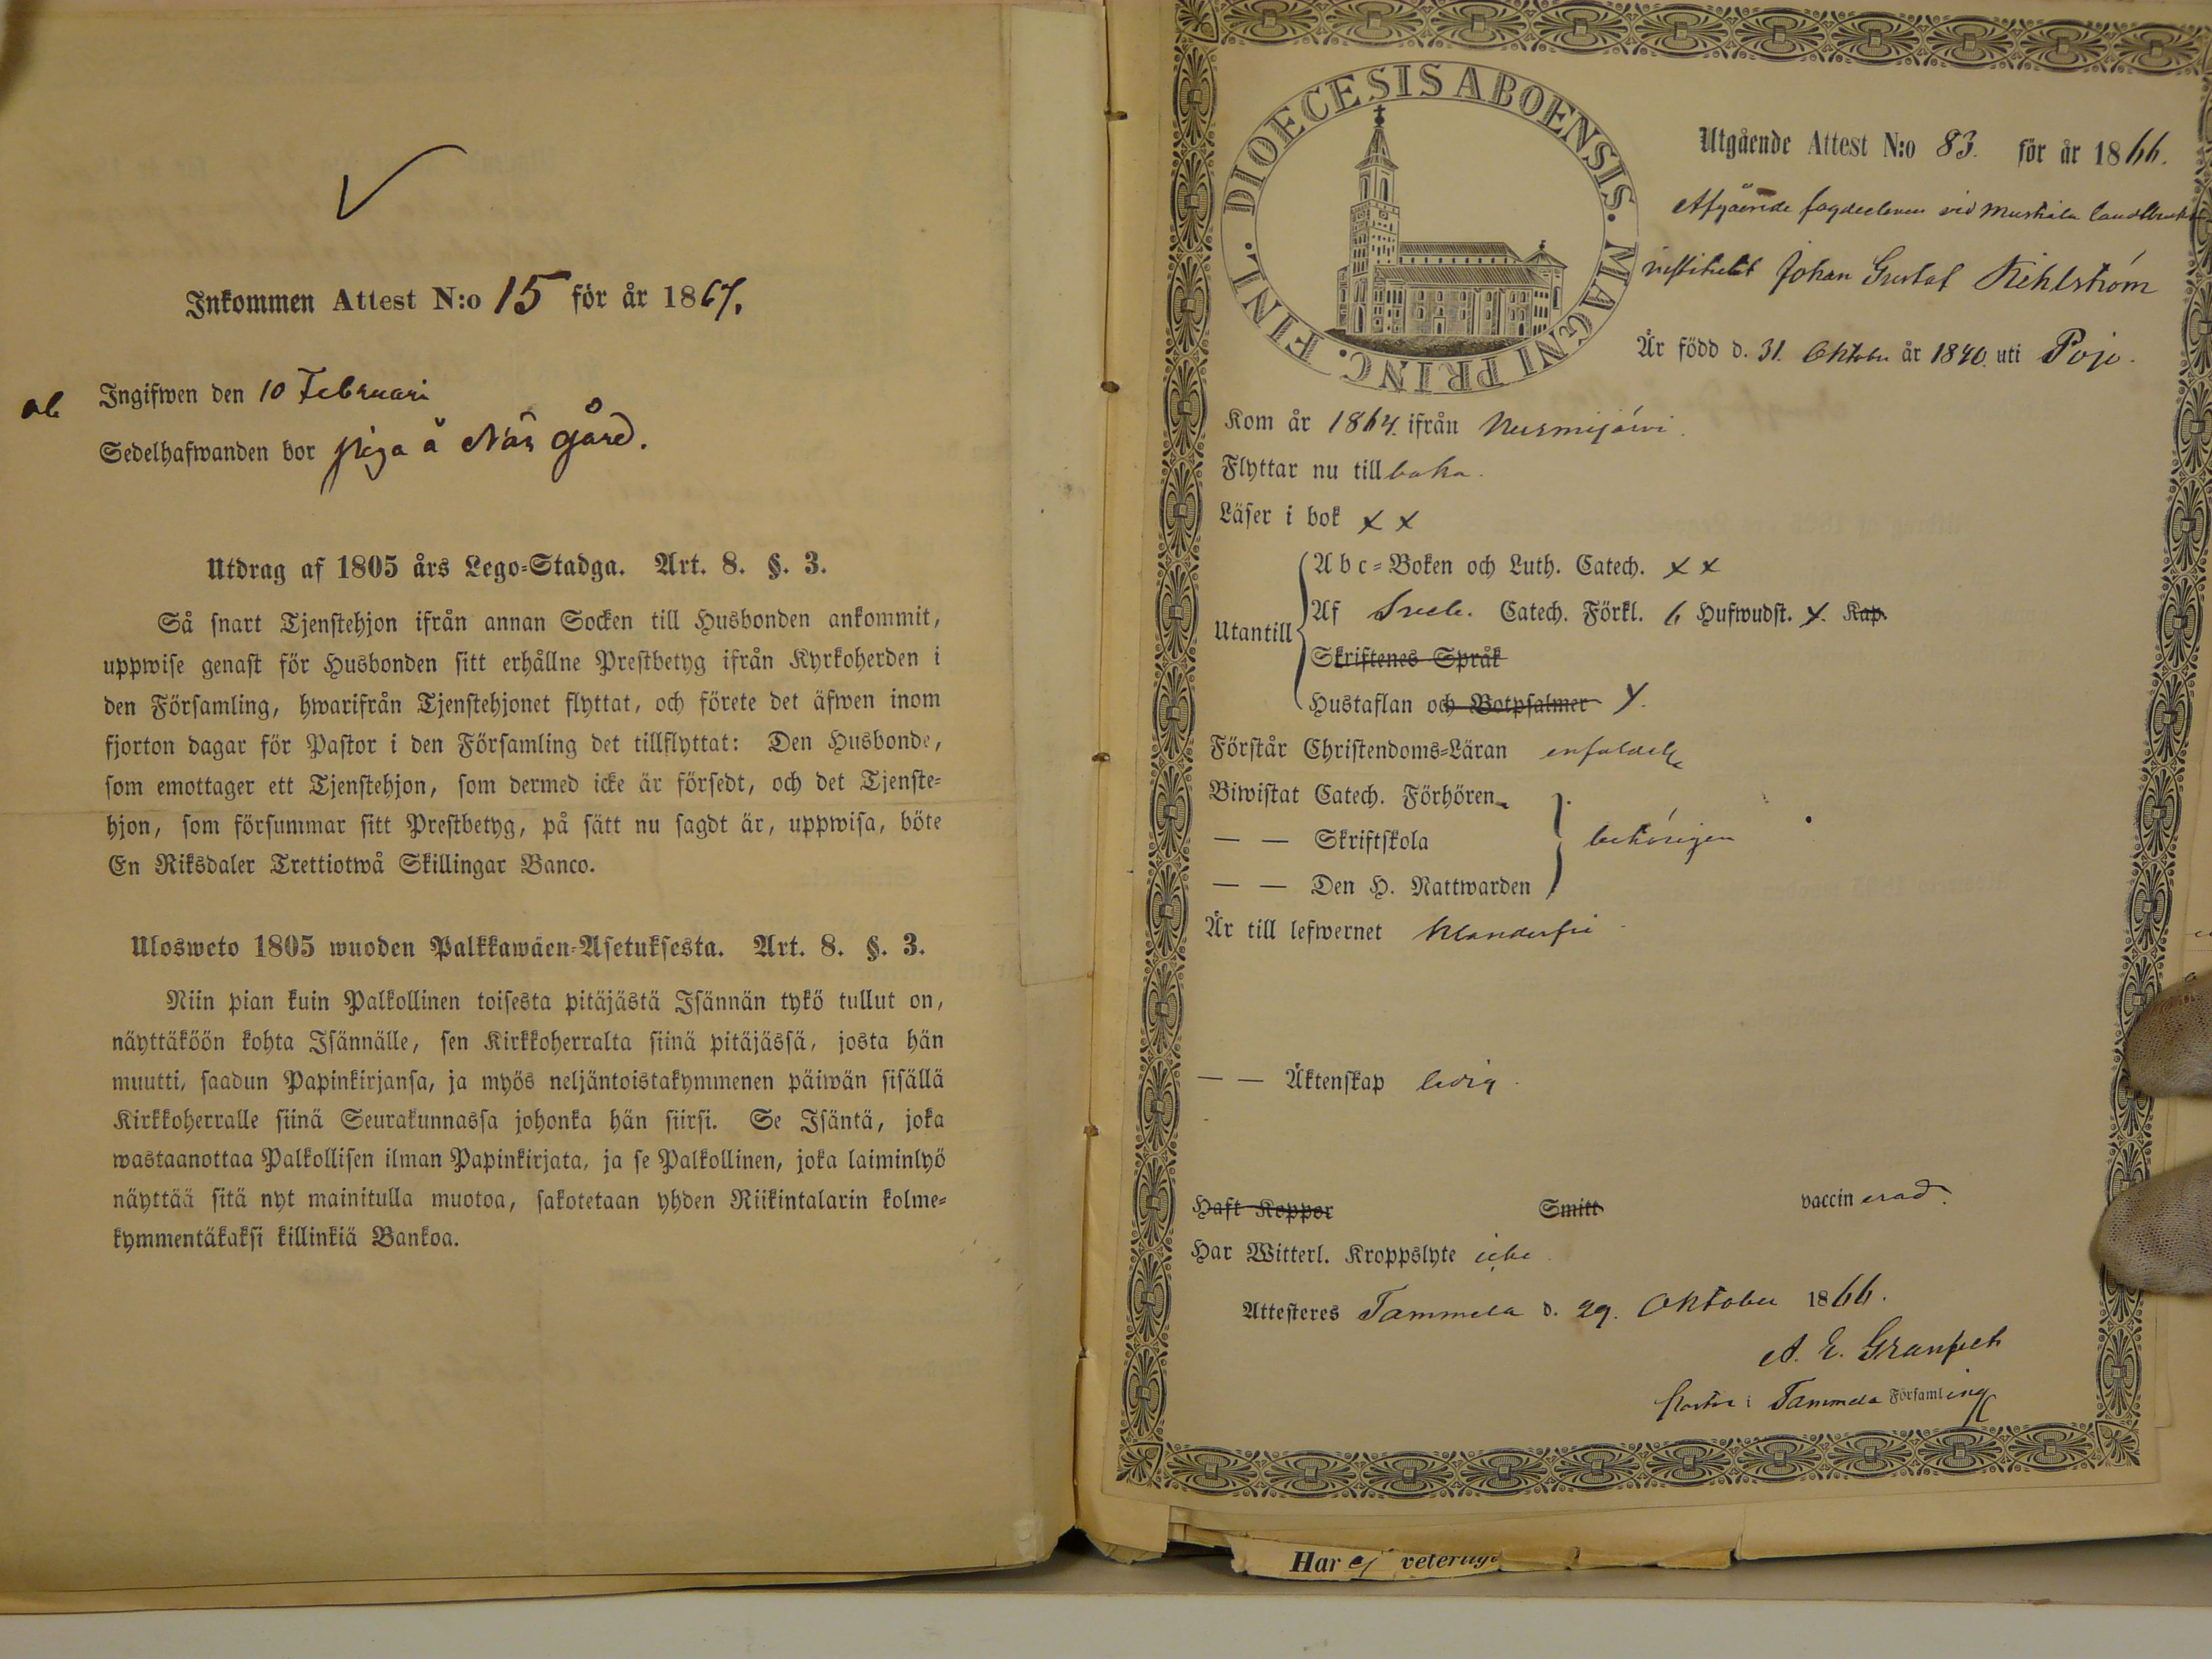 Inkommen Attest N:o 15 för år 1867.
Ingifwen den 10 Februari
Sedelhafwanden bor piga å Näs gård.
Utdrag af 1805 års Lego-Stadga. Art. 8. §. 3.
Så snart Tjenstehjon ifrån annan Socken till Husbonden ankommit,
uppwise genast för Husbonden sitt erhållne Prestbetyg ifrån Kyrkoherden i
den Församling, hwarifrån Tjenstehjonet flyttat, och förete det äfwen inom
fjorton dagar för Pastor i den Församling det tillflyttat: Den Husbonde,
som emottager ett Tjenstehjon, som dermed icke är försedt, och det Tjenste-
hjon, som försummar sitt Prestbetyg, på sätt nu sagdt är, uppwisa, böte
En Riksdaler Trettiotwå Skillingar Banco.
Ulosweto 1805 wuoden Palkkawäen-Asetuksesta. Art. 8. §. 3.
Niin pian kuin Palkollinen toisesta pitäjästä Isännän tykö tullut on,
näyttäköön kohta Isännälle, sen Kirkkoherralta siinä pitäjässä, josta hän
muutti, saadun Papinkirjansa, ja myös neljäntoistakymmenen päiwän sisällä
Kirkkoherralle siinä Seurakunnassa johonka hän siirsi. Se Isäntä, joka
wastaanottaa Palkollisen ilman Papinkirjata, ja se Palkollinen, joka laiminlyö
näyttää sitä nyt mainitulla muotoa, sakotetaan yhden Riikintalarin kolme-
kymmentäkaksi killinkiä Bankoa.
DIOECESIS ABOENSIS. MAGNI PRINC. FINL.
Utgående Attest N:o 83. för år 1866.
Afgående fogdeeleven vid Mustiala landtbruks
institutet Johan Gustaf Kihlström
Är född d. 31. Oktober år 1840. uti Pojo.
Kom år 1864. ifrån Nurmijärvi.
Flyttar nu tillbaka.
Läser i bok x x
Utantill
Abc-Boken och Luth. Catech. x x
Af Sveb. Catech. Förkl. 6 Hufwudst. x. Kap.
Skriftenes Språk
Hustaflan och Botpsalmer y.
Förstår Christendoms-Läran enfaldelig
Biwistat Catech. Förhören
— — Skriftskola behörigen
— — Den H. Nattwarden
Är till lefwernet klanderfri
— — Äktenskap ledig.
Haft Koppor Smitt vaccinerad.
Har Witterl. Kroppslyte icke
Attesteres Tammela d. 29. Oktober 1866.
A. E. Granfelt
Pastor i Tammela Församling
Har ej